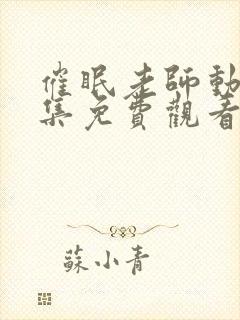 催眠老師動
集免費觀看
蘇小青